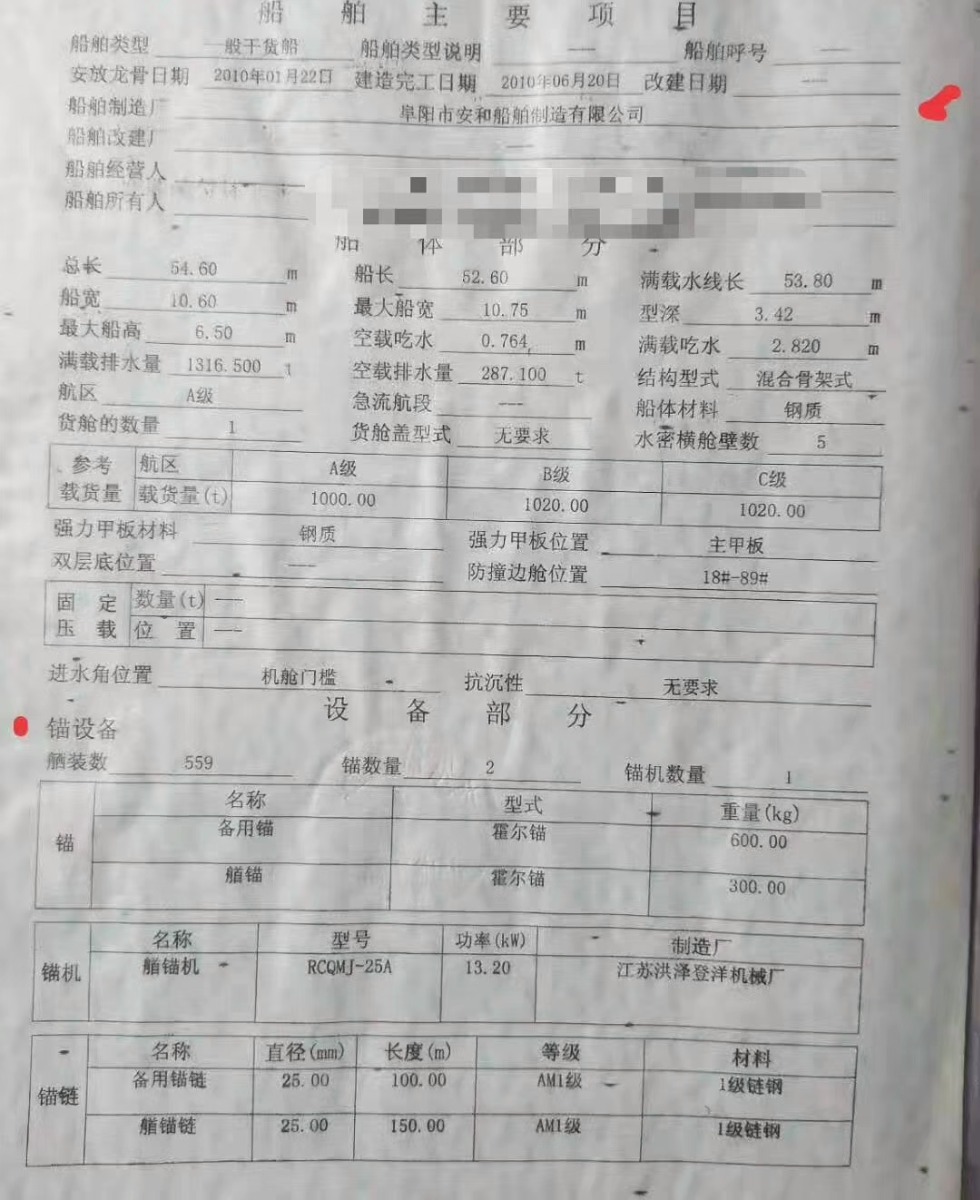 船舶主要项目
船舶类型 一般干货船 船舶类型说明 --- 船舶呼号 ---
安放龙骨日期 2010年01月22日 建造完工日期 2010年06月20日 改建日期 ---
船舶制造厂 阜阳市安和船舶制造有限公司
船舶改建厂 ---
船舶经营人
船舶所有人
船体部分
总长 54.60 m 船长 52.60 m 满载水线长 53.80 m
船宽 10.60 m 最大船宽 10.75 m 型深 3.42 m
最大船高 6.50 m 空载吃水 0.764 m 满载吃水 2.820 m
满载排水量 1316.500 t 空载排水量 287.100 t 结构型式 混合骨架式
航区 A级 急流航段 --- 船体材料 钢质
货舱的数量 1 货舱盖型式 无要求 水密横舱壁数 5
参考 航区 A级 B级 C级
载货量 载货量(t) 1000.00 1020.00 1020.00
强力甲板材料 钢质 强力甲板位置 主甲板
双层底位置 --- 防撞边舱位置 18#-89#
固定 数量(t) ---
压载 位置 ---
进水角位置 机舱门槛 抗沉性 无要求
设备部分
锚设备
舾装数 559 锚数量 2 锚机数量 1
锚 名称 型式 重量(kg)
备用锚 霍尔锚 600.00
艏锚 霍尔锚 300.00
锚机 名称 型号 功率(kW) 制造厂
艏锚机 RCQMJ-25A 13.20 江苏洪泽登洋机械厂
锚链 名称 直径(mm) 长度(m) 等级 材料
备用锚链 25.00 100.00 AM1级 1级链钢
艏锚链 25.00 150.00 AM1级 1级链钢